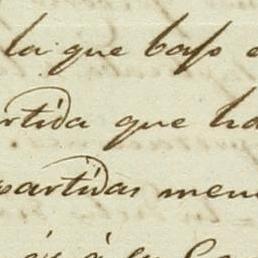 la que bajo
rtida que ha
partidas men